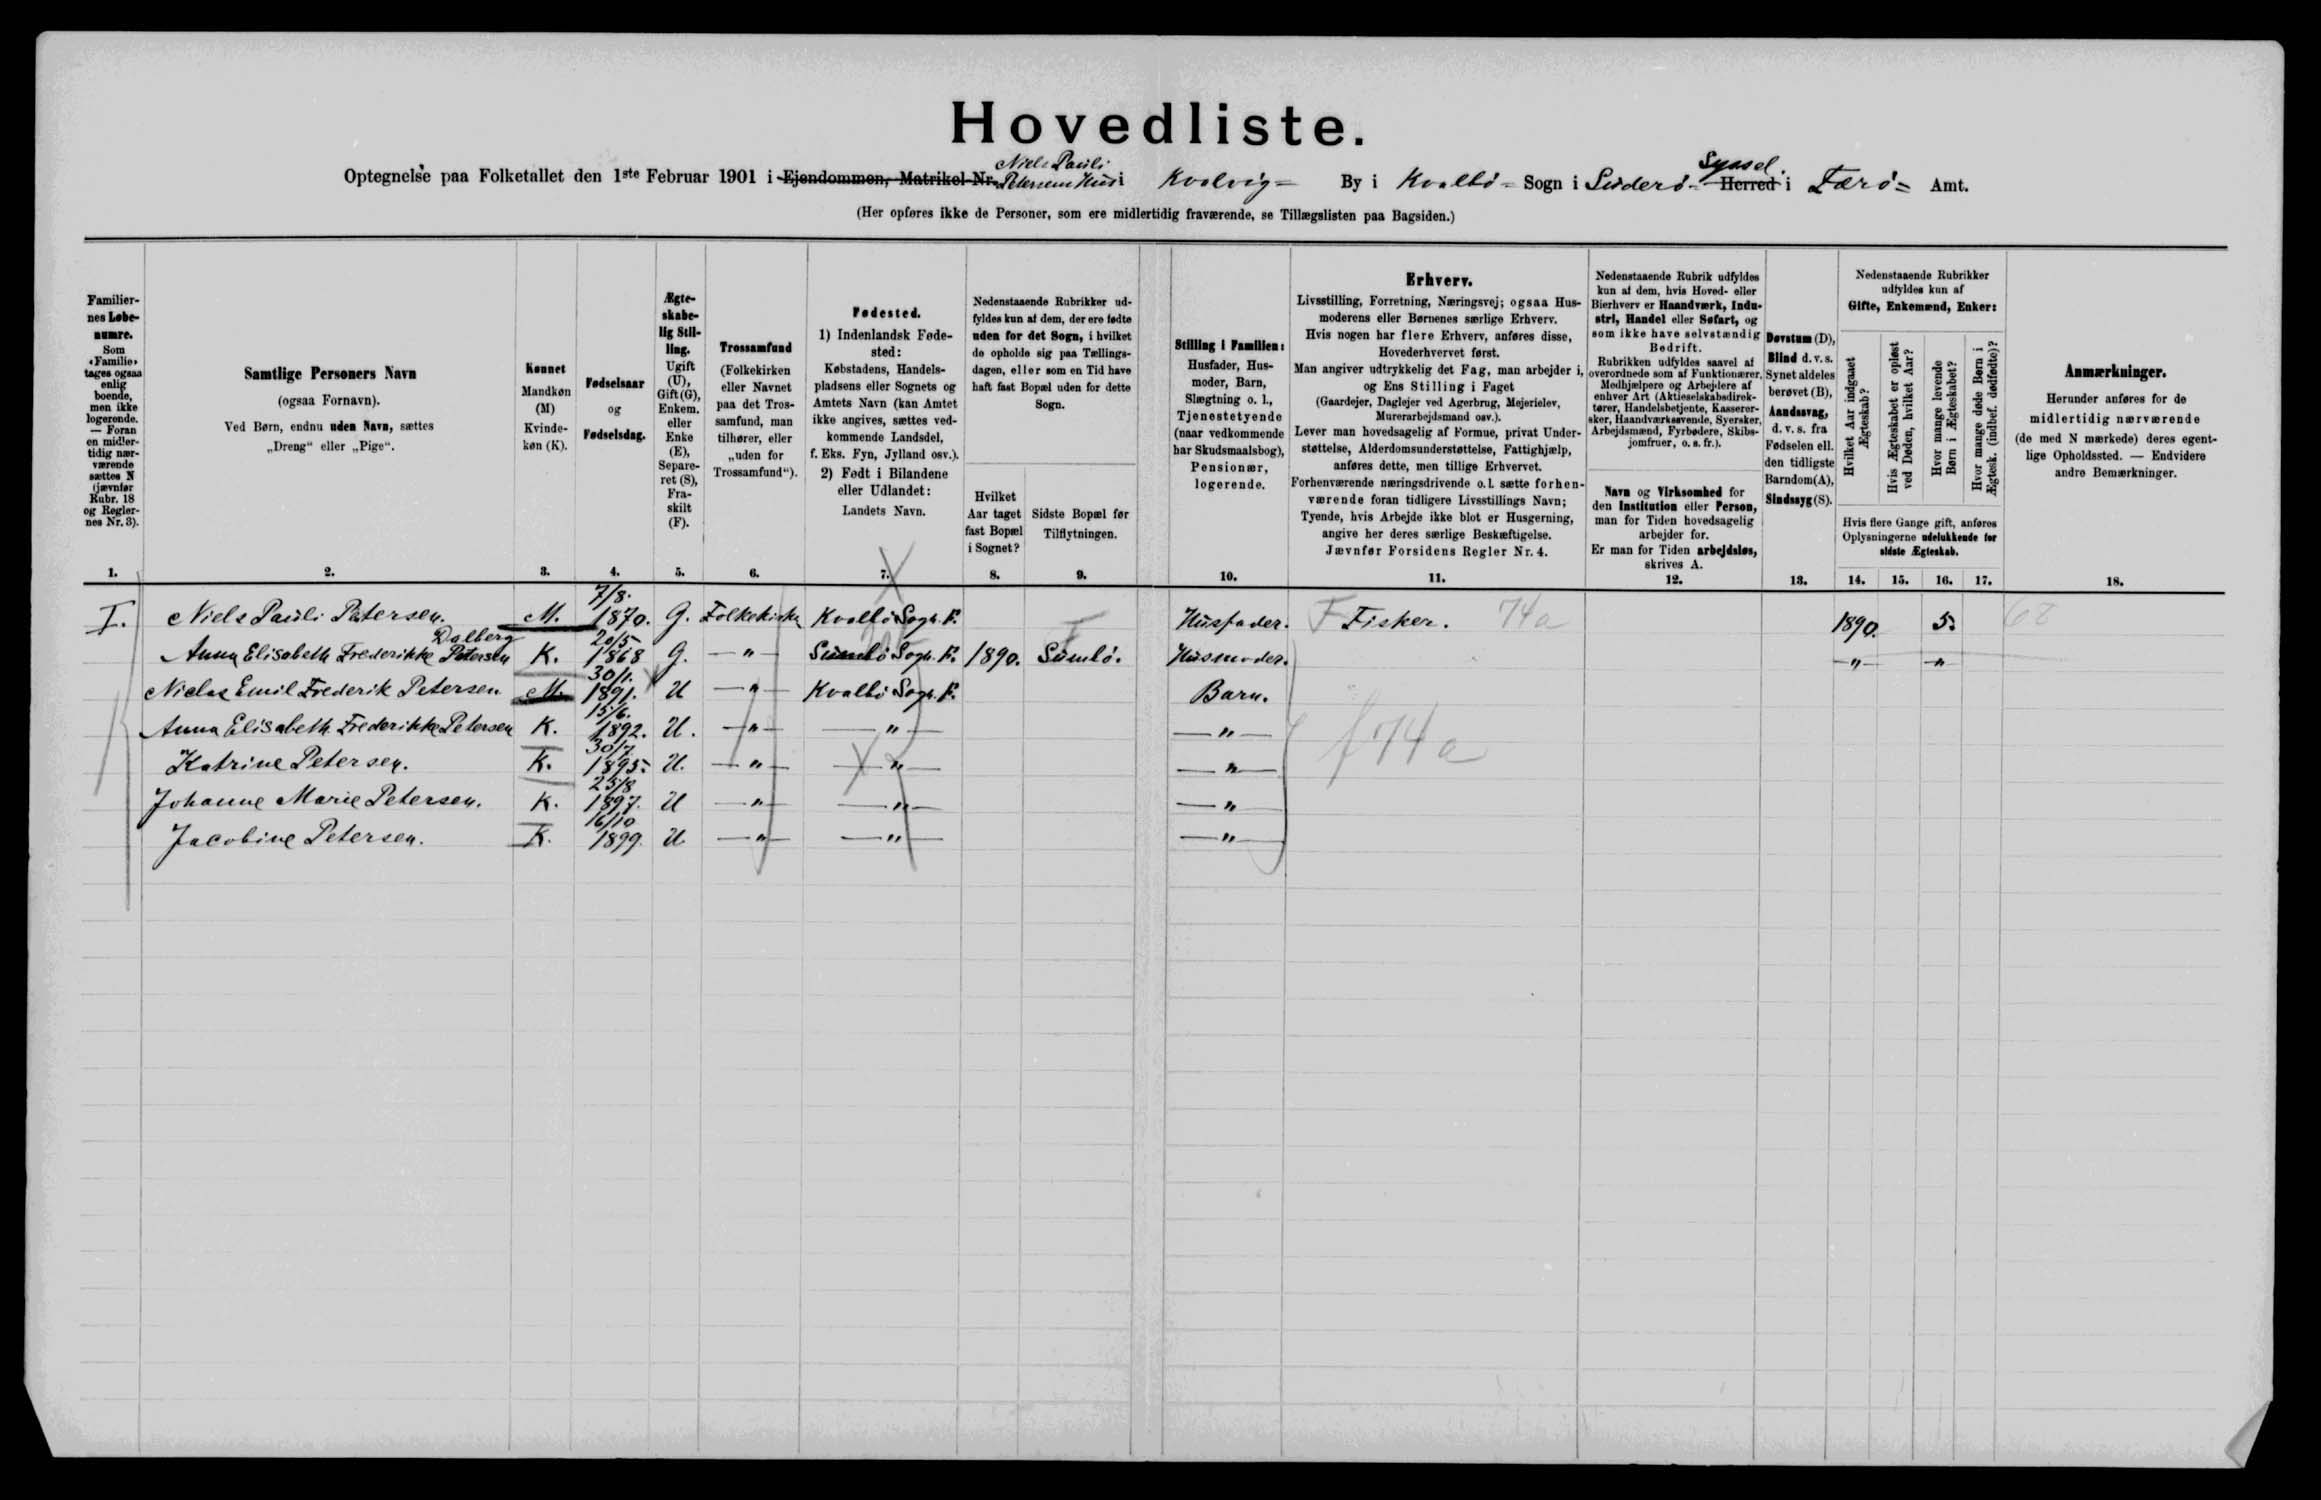 Hovedliste.
Niels Pauli
Syssel.
Optegnelse paa Folketallet den 1ste Februar 1901 i Ejendommen, Matrikel-Nr. Petersens Hus i Kvalvig= By i Kvalbö= Sogn i Suderö= Herred i Færö= Amt.
(Her opføres ikke de Personer, som ere midlertidig fraværende, se Tillægslisten paa Bagsiden.)
Familiernes Løbenumre.
Som «Familie» tages ogsaa enlig boende, men ikke logerende. — Foran en midlertidig nærværende sættes N (jævnfør Rubr. 18 og Reglernes Nr. 3).
Samtlige Personers Navn
(ogsaa Fornavn).
Ved Børn, endnu uden Navn, sættes
„Dreng“ eller „Pige“.
Kønnet
Mandkøn (M)
Kvindekøn (K).
Fødselsaar
og
Fødselsdag.
Ægteskabelig Stilling.
Ugift (U), Gift (G), Enkem. eller Enke (E), Separeret (S), Fraskilt (F).
Trossamfund
(Folkekirken eller Navnet paa det Trossamfund, man tilhører, eller „uden for Trossamfund“).
Fødested.
1) Indenlandsk Fødested:
Købstadens, Handelspladsens eller Sognets og Amtets Navn (kan Amtet ikke angives, sættes vedkommende Landsdel, f. Eks. Fyn, Jylland osv.).
2) Født i Bilandene eller Udlandet:
Landets Navn.
Nedenstaaende Rubrikker udfyldes kun af dem, der ere fødte uden for det Sogn, i hvilket de opholde sig paa Tællingsdagen, eller som en Tid have haft fast Bopæl uden for dette Sogn.
Hvilket Aar taget fast Bopæl i Sognet?
Sidste Bopæl før Tilflytningen.
Stilling i Familien:
Husfader, Husmoder, Barn, Slægtning o. l., Tjenestetyende (naar vedkommende har Skudsmaalsbog), Pensionær, logerende.
Erhverv.
Livsstilling, Forretning, Næringsvej; ogsaa Husmoderens eller Børnenes særlige Erhverv.
Hvis nogen har flere Erhverv, anføres disse, Hovederhvervet først.
Man angiver udtrykkelig det Fag, man arbejder i, og Ens Stilling i Faget
(Gaardejer, Daglejer ved Agerbrug, Mejerielev, Murerarbejdsmand osv.).
Lever man hovedsagelig af Formue, privat Understøttelse, Alderdomsunderstøttelse, Fattighjælp, anføres dette, men tillige Erhvervet.
Forhenværende næringsdrivende o. l. sætte forhenværende foran tidligere Livsstillings Navn;
Tyende, hvis Arbejde ikke blot er Husgerning, angive her deres særlige Beskæftigelse.
Jævnfør Forsidens Regler Nr. 4.
Nedenstaaende Rubrik udfyldes kun af dem, hvis Hoved- eller Bierhverv er Haandværk, Industri, Handel eller Søfart, og som ikke have selvstændig Bedrift.
Rubrikken udfyldes saavel af overordnede som af Funktionærer, Medhjælpere og Arbejdere af enhver Art (Aktieselskabsdirektører, Handelsbetjente, Kasserersker, Haandværkssvende, Syersker, Arbejdsmænd, Fyrbødere, Skibsjomfruer, o. s. fr.).
Navn og Virksomhed for den Institution eller Person, man for Tiden hovedsagelig arbejder for.
Er man for Tiden arbejdsløs, skrives A.
Døvstum (D), Blind d. v. s. Synet aldeles berøvet (B), Aandssvag, d. v. s. fra Fødselen ell. den tidligste Barndom (A), Sindssyg (S).
Nedenstaaende Rubrikker udfyldes kun af
Gifte, Enkemænd, Enker:
Hvilket Aar indgaaet Ægteskab?
Hvis Ægteskabet er opløst ved Døden, hvilket Aar?
Hvor mange levende Børn i Ægteskabet?
Hvor mange døde Børn i Ægtesk. (indbef. dødfødte)?
Hvis flere Gange gift, anføres Oplysningerne udelukkende for sidste Ægteskab.
Anmærkninger.
Herunder anføres for de midlertidig nærværende (de med N mærkede) deres egentlige Opholdssted. — Endvidere andre Bemærkninger.
1. 2. 3. 4. 5. 6. 7. 8. 9. 10. 11. 12. 13. 14. 15. 16. 17. 18.
I. Niels Pauli Petersen. M. 7/8. 1870. G. Folkekirke Kvalbö Sogn. F. Husfader. F Fisker. 74a 1890. 5. 68
Dalberg
Anna Elisabeth Frederikke Petersen K. 20/5 1868 G. —"— Sumbö Sogn. F. 1890. Sumbö. Husmoder. —"— —"—
Niclas Emil Frederik Petersen M. 30/1. 1891. U —"— Kvalbö Sogn. F. Barn.
Anna Elisabeth Frederikke Petersen K. 15/6. 1892. U. —"— —"— —"— f 74 a
Katrine Petersen. K. 30/7. 1895. U. —"— —"— —"—
Johanne Marie Petersen. K. 25/8 1897. U —"— —"— —"—
Jacobine Petersen. K. 16/10 1899. U. —"— —"— —"—